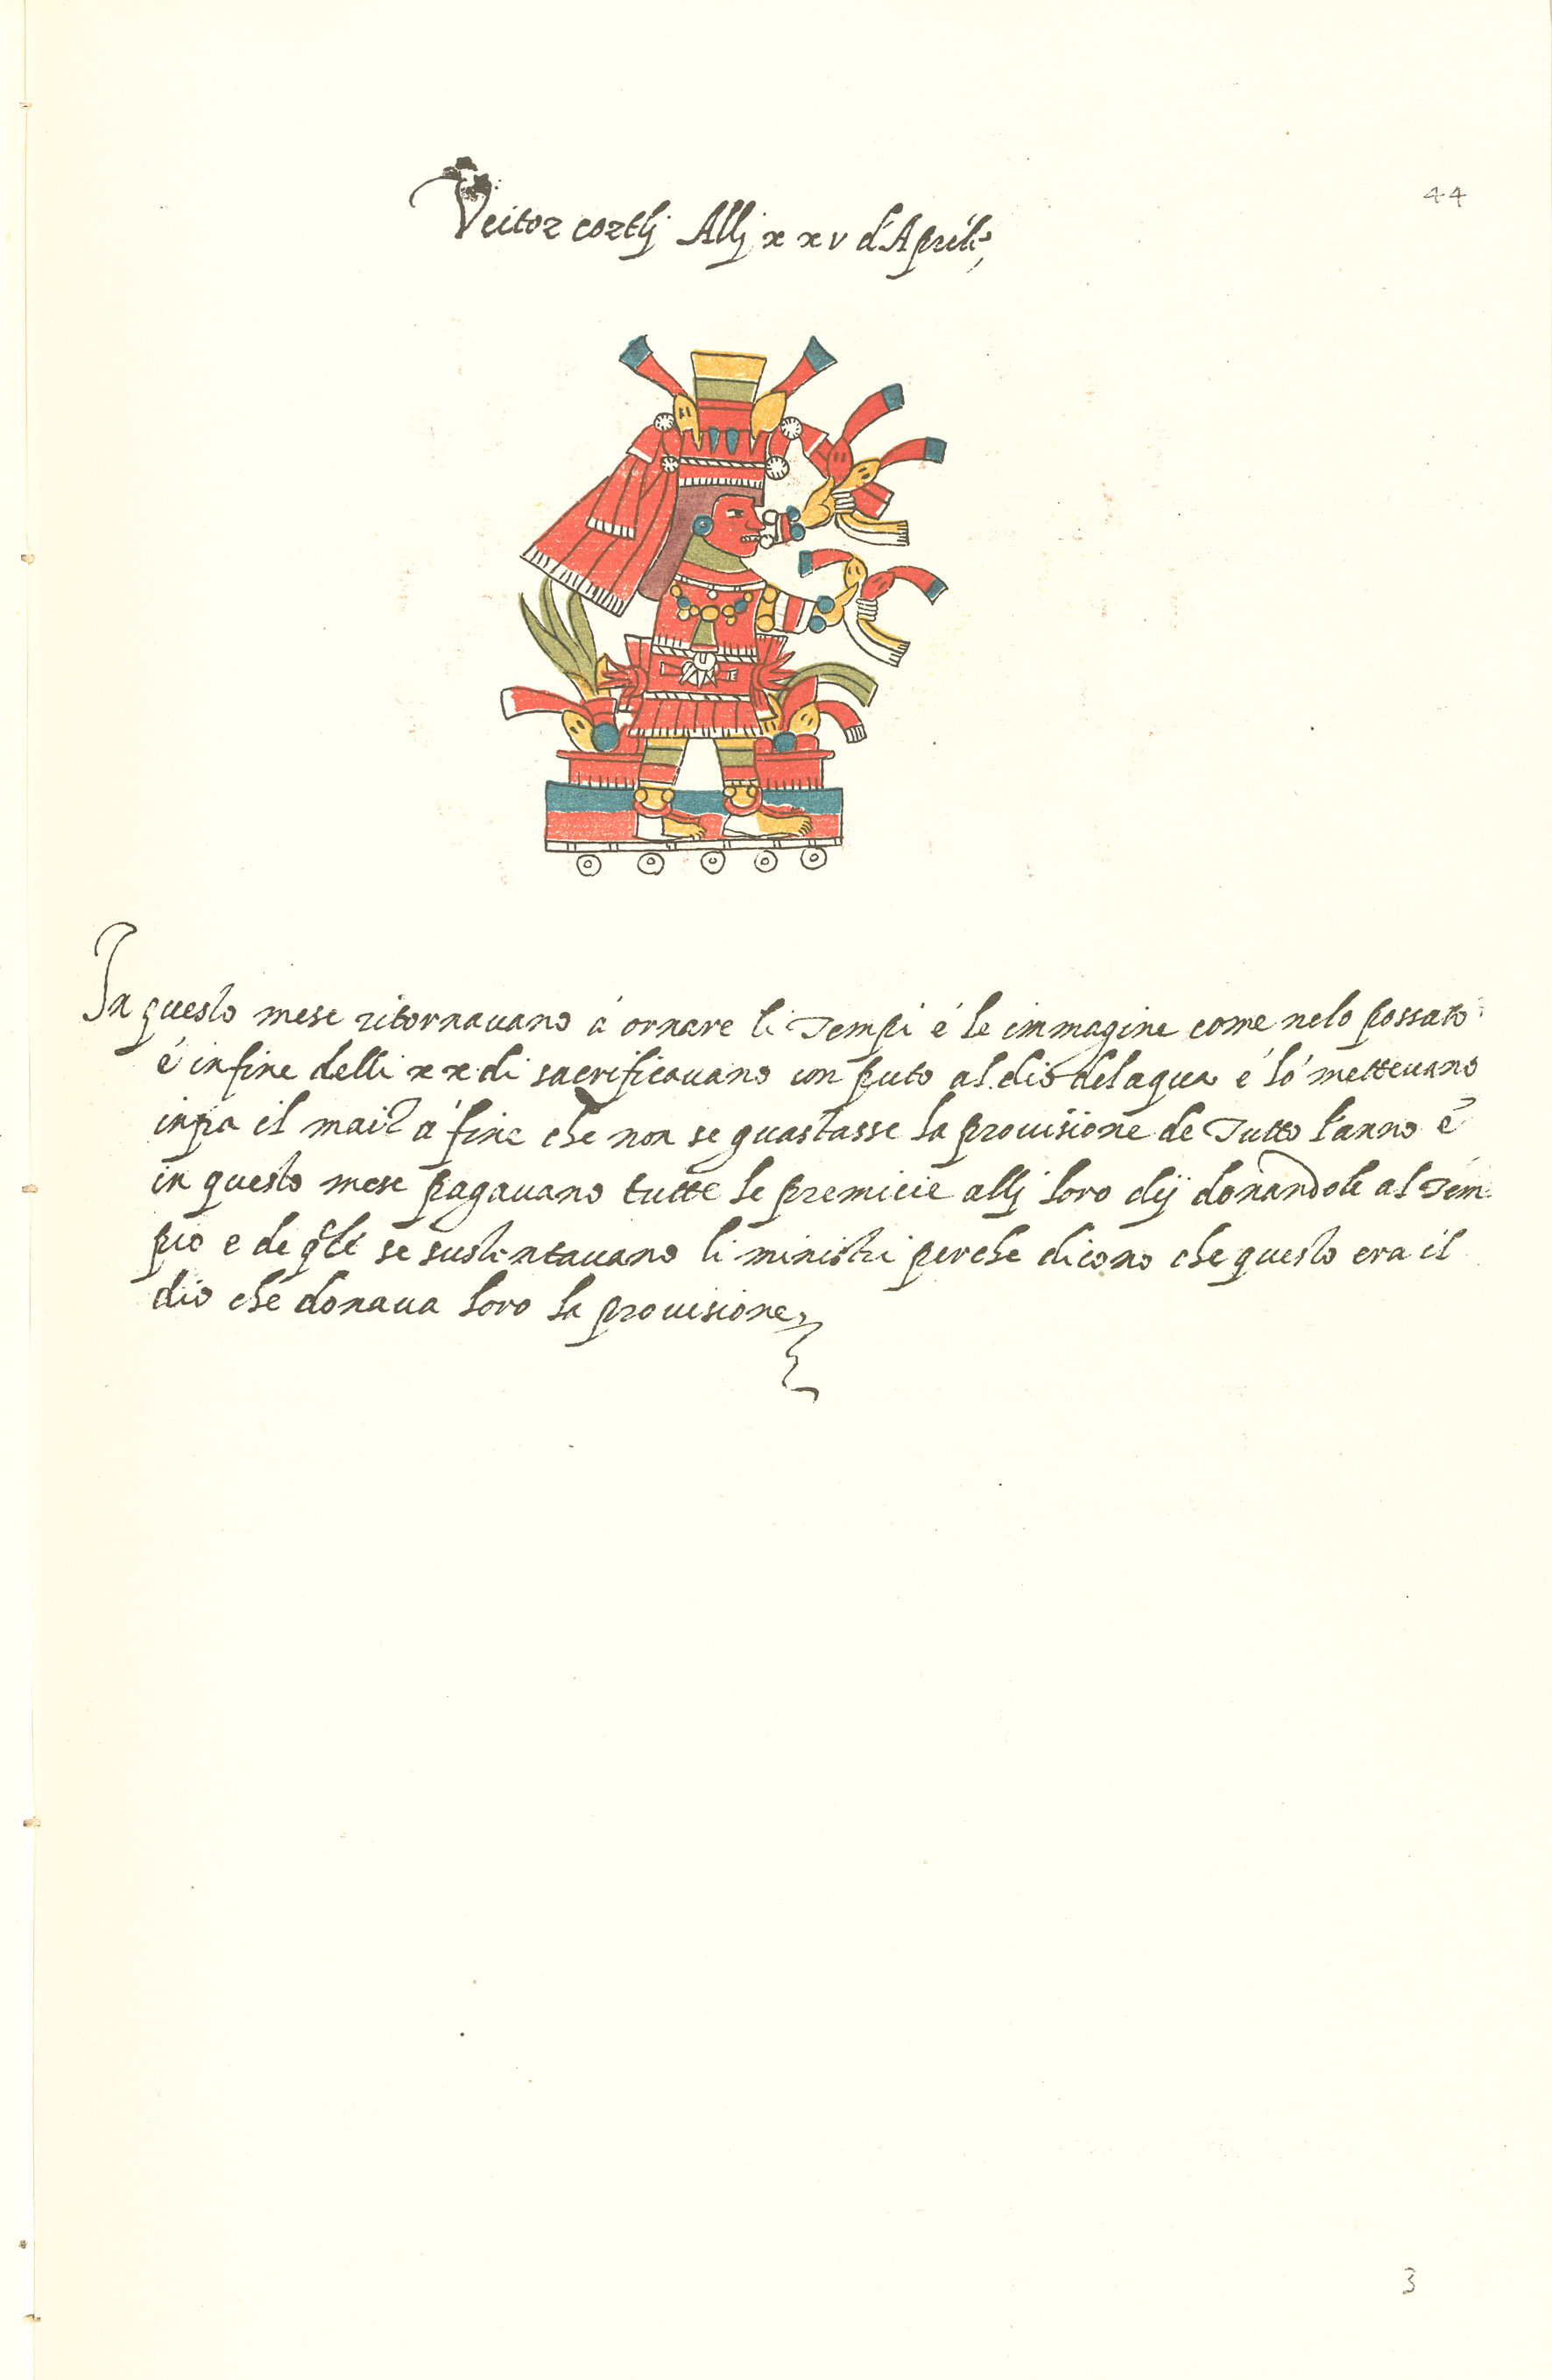 44
Veitozcoztlj Allj xxv d'Aprile,
In questo mese ritornauano á ornare li Tempi é le immagine come nelo possato
é infine delli xx di sacrificauano un puto al dio del aqua é ló metteuano
infra il maiz á fine che non se guastasse la prouisione de Tutto l'anno é
in questo mese pagauano tutte le premicie allj loro dij donandole al Tem
pio e de q̃lle se sustentauano li ministri perche dicono che questo era il
dio che donaua loro la prouisione,
3